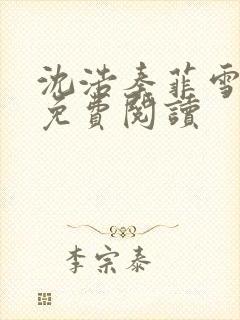 沈浩秦菲雪
免費閱讀
李宗泰